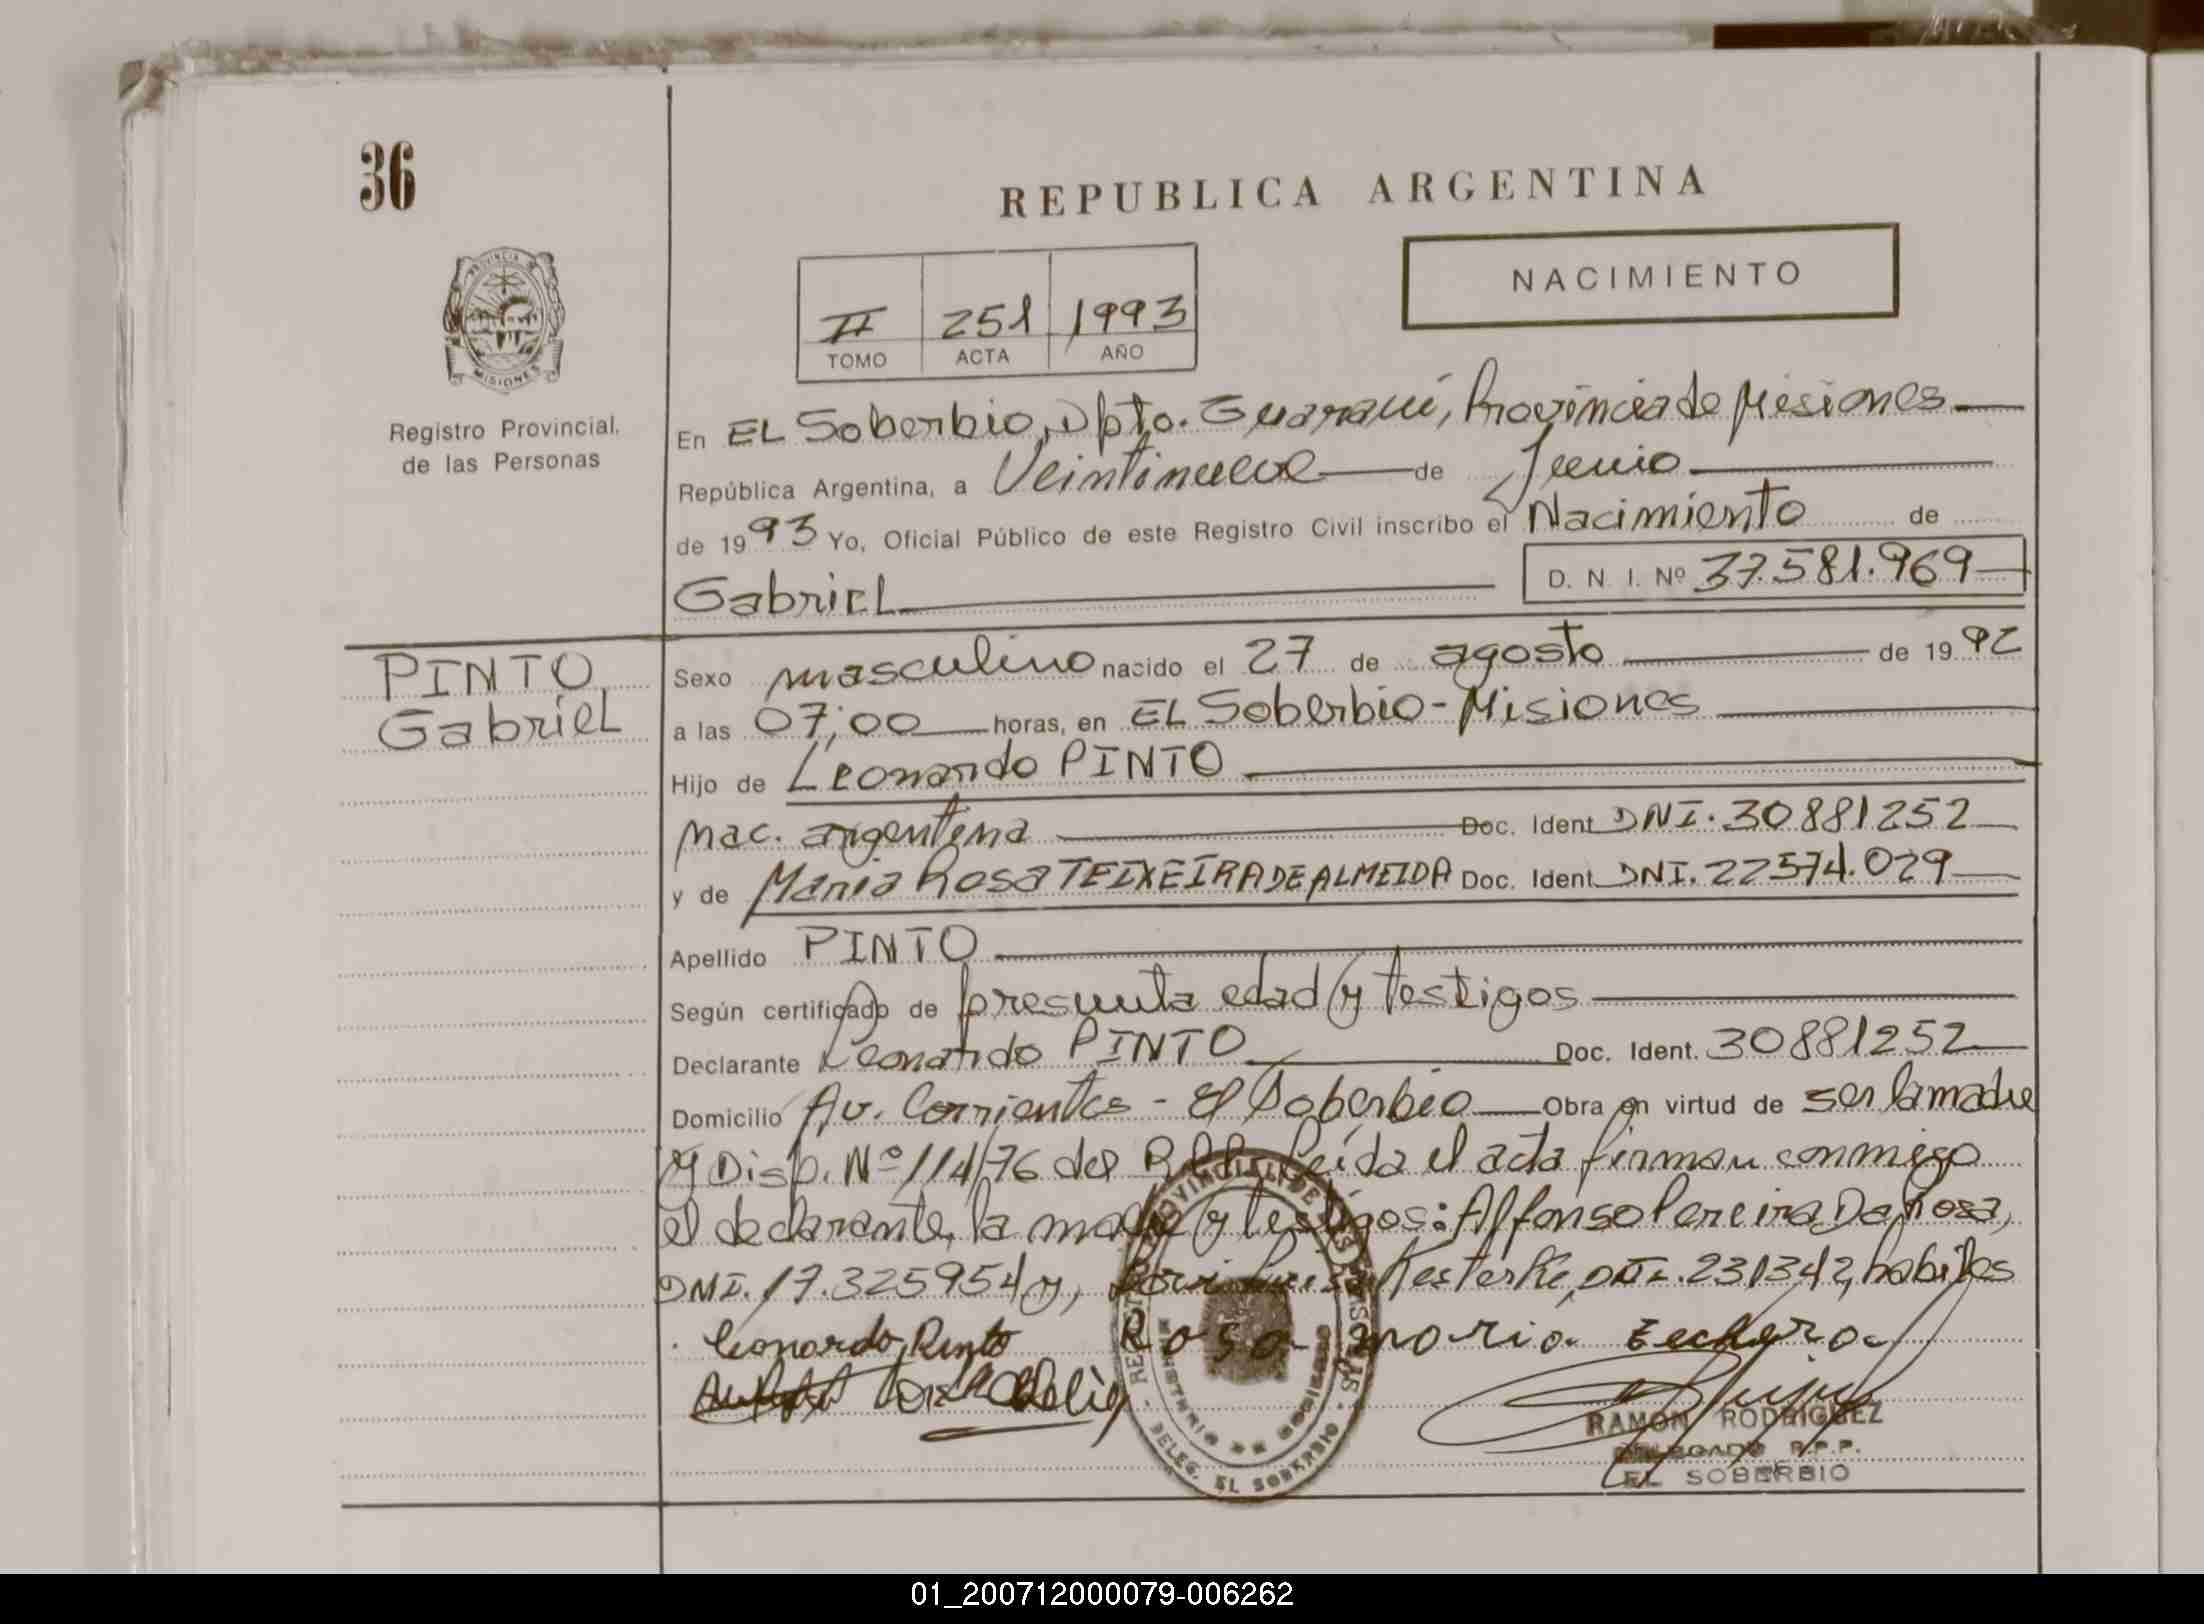 36
REPUBLICA ARGENTINA
NACIMIENTO
II 251 1993
TOMO ACTA AÑO
PROVINCIA DE
MISIONES
Registro Provincial.
de las Personas
En EL Soberbio, Dpto. Guaraní, Provincia de Misiones
República Argentina, a Veintinueve de Junio
de 1993 Yo, Oficial Público de este Registro Civil inscribo el Nacimiento de
Gabriel D. N. I. Nº 37.581.969
PINTO
Gabriel
Sexo masculino nacido el 27 de agosto de 1992
a las 07,00 horas, en EL Soberbio - Misiones
Hijo de Leonardo PINTO
nac. argentina Doc. Ident DNI. 30881252
y de Maria Rosa TEIXEIRA DE ALMEIDA Doc. Ident DNI. 22574.029
Apellido PINTO
Según certificado de presunta edad y testigos
Declarante Leonardo PINTO Doc. Ident. 30881252
Domicilio Av. Corrientes - El Soberbio Obra en virtud de ser la madre
y Disp. Nº 114/76 del leída el acta firman conmigo
el declarante, la madre y testigos: Alfonso Pereira Da Rosa,
DNI. 17.325954 y, Kesterke, DNI. 231342, habiles
Leonardo Pinto Rosa maria
RAMON RODRIGUEZ
DELEGADO R.P.P.
EL SOBERBIO
DELEG. EL SOBERBIO
01_200712000079-006262